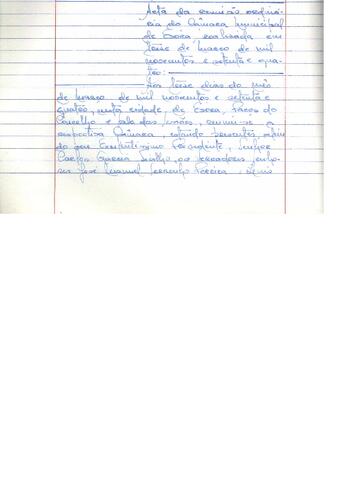 Acta da reunião ordiná-
ria da Câmara Municipal
de Évora, realizada em
treze de março de mil
novecentos e setenta e qua-
tro:
Aos treze dias do mês
de março de mil novecentos e setenta e
quatro, nesta cidade de Évora, Paços do
Concelho e sala das sessões, reuniu-se a
respectiva Câmara, estando presentes, além
do seu Excelentíssimo Presidente, Senhor
Carlos os vereadores senho-
res José Manuel Pereira,